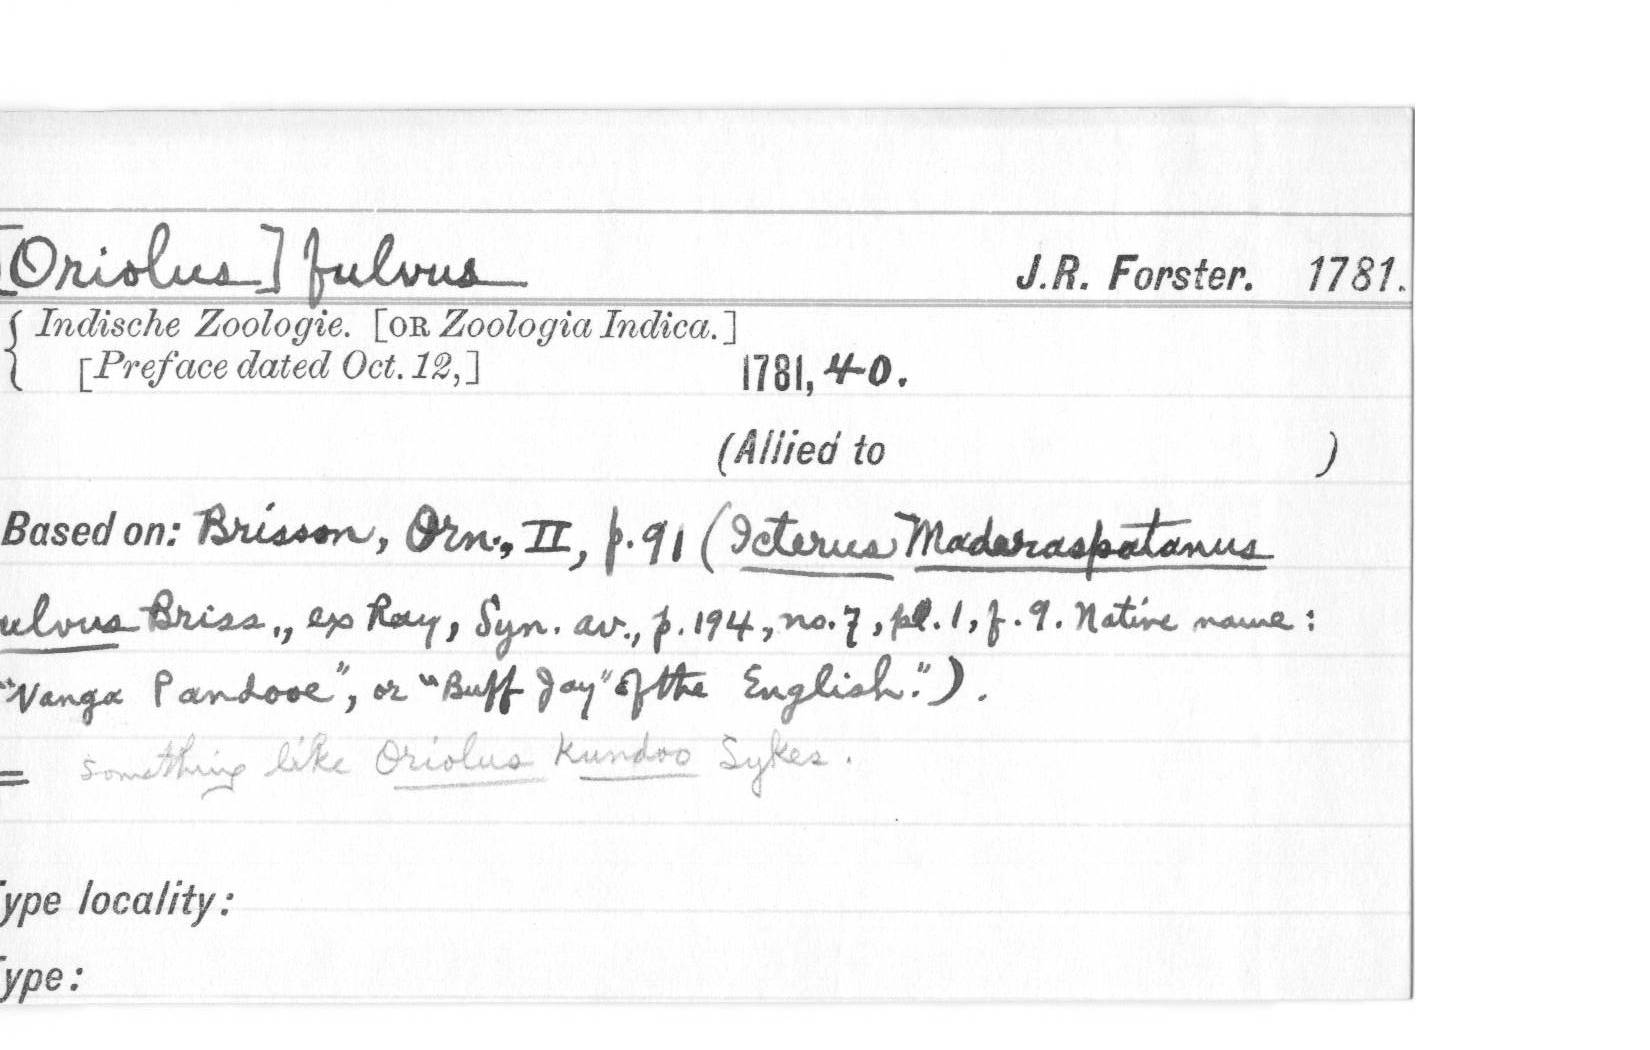 [Oriolus] fulvus J.R. Forster. 1781.
{ Indische Zoologie. [OR Zoologia Indica.]
[Preface dated Oct. 12,] 1781, 40.
(Allied to )
Based on: Brisson, Orn., II, p. 91 (Icterus Maderaspatanus
ulvus Briss., ex Ray, Syn. av., p. 194, no. 7, pl. 1, f. 9. Native name:
"Vanga Pandooe", or "Buff Jay" of the English.").
= something like Oriolus Kundoo Sykes.
ype locality:
ype: